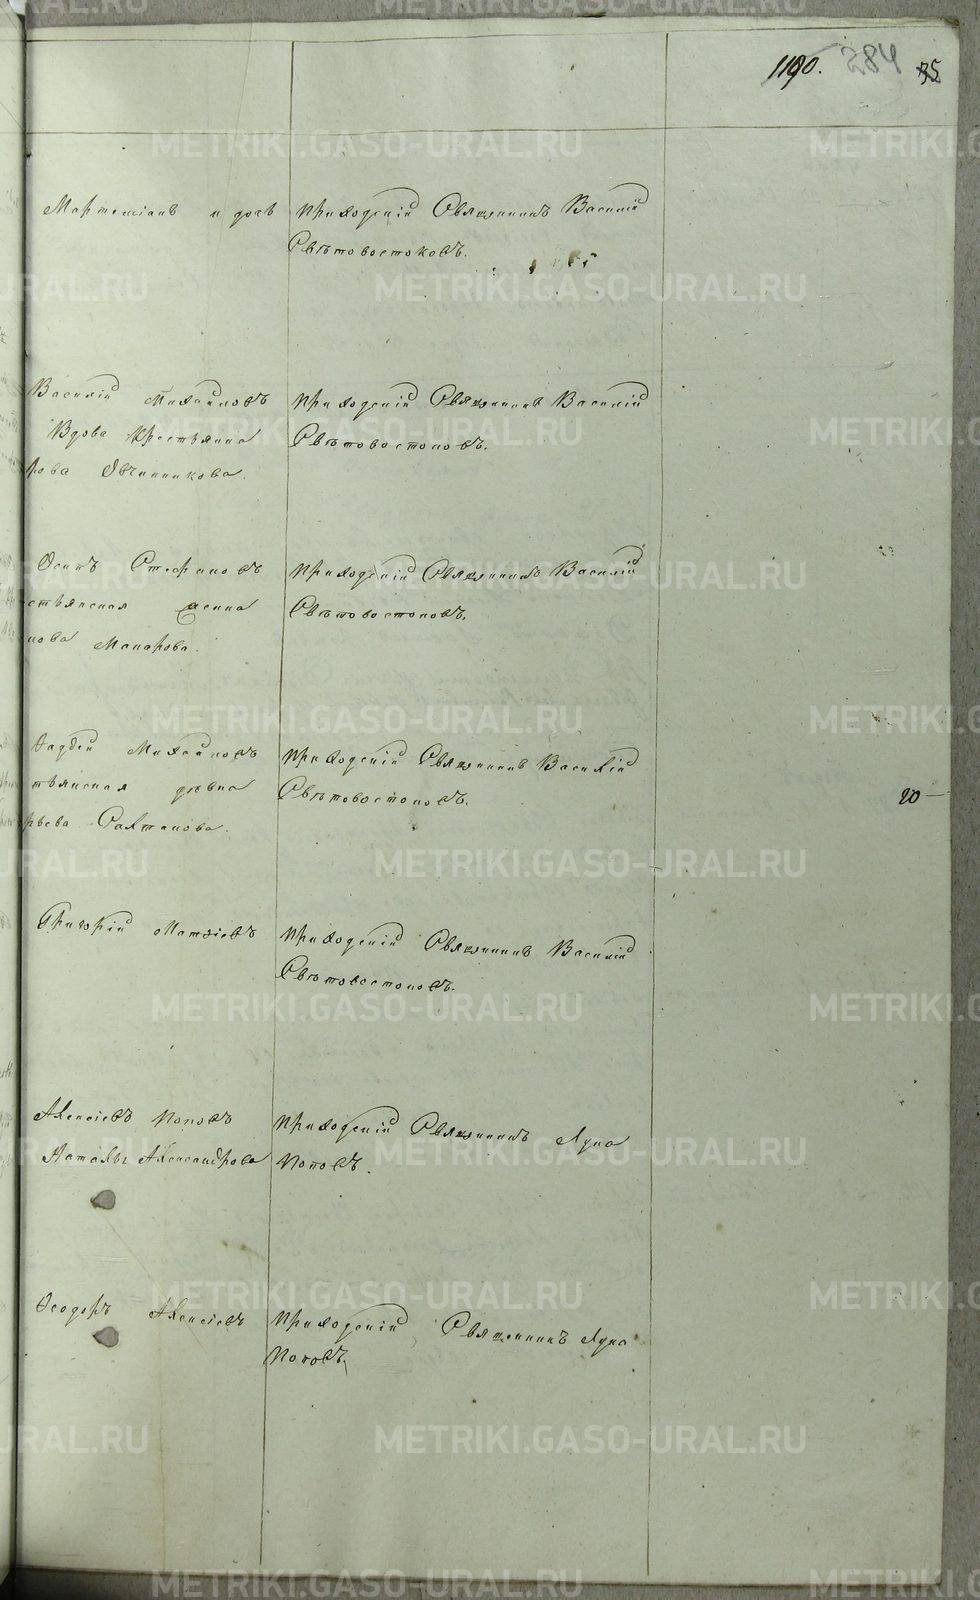 1190. 284 35
Мартемiанъ и дочь
приходскiй Священникъ Василiй
Свѣтовостоковъ.
Василiй Михайловъ
Вдова Крестьянка
рова Овчинникова.
приходскiй Священникъ Василiй
Свѣтовостоковъ.
Осипъ Стефановъ
стьянская жена
нова Макарова.
приходскiй Священникъ Василiй
Свѣтовостоковъ.
Фадѣй Михайловъ
тьянская дѣвка
рьева
приходскiй Священникъ Василiй
Свѣтовостоковъ.
20 —
Григорiй Матвiевъ
приходскiй Священникъ Василiй
Свѣтовостоковъ.
Алексiевъ Поповъ
Александрова
приходскiй Священникъ Лука
Поповъ.
Феодоръ Алексiевъ
приходскiй Священникъ Лука
Поповъ.
METRIKI.GASO-URAL.RU